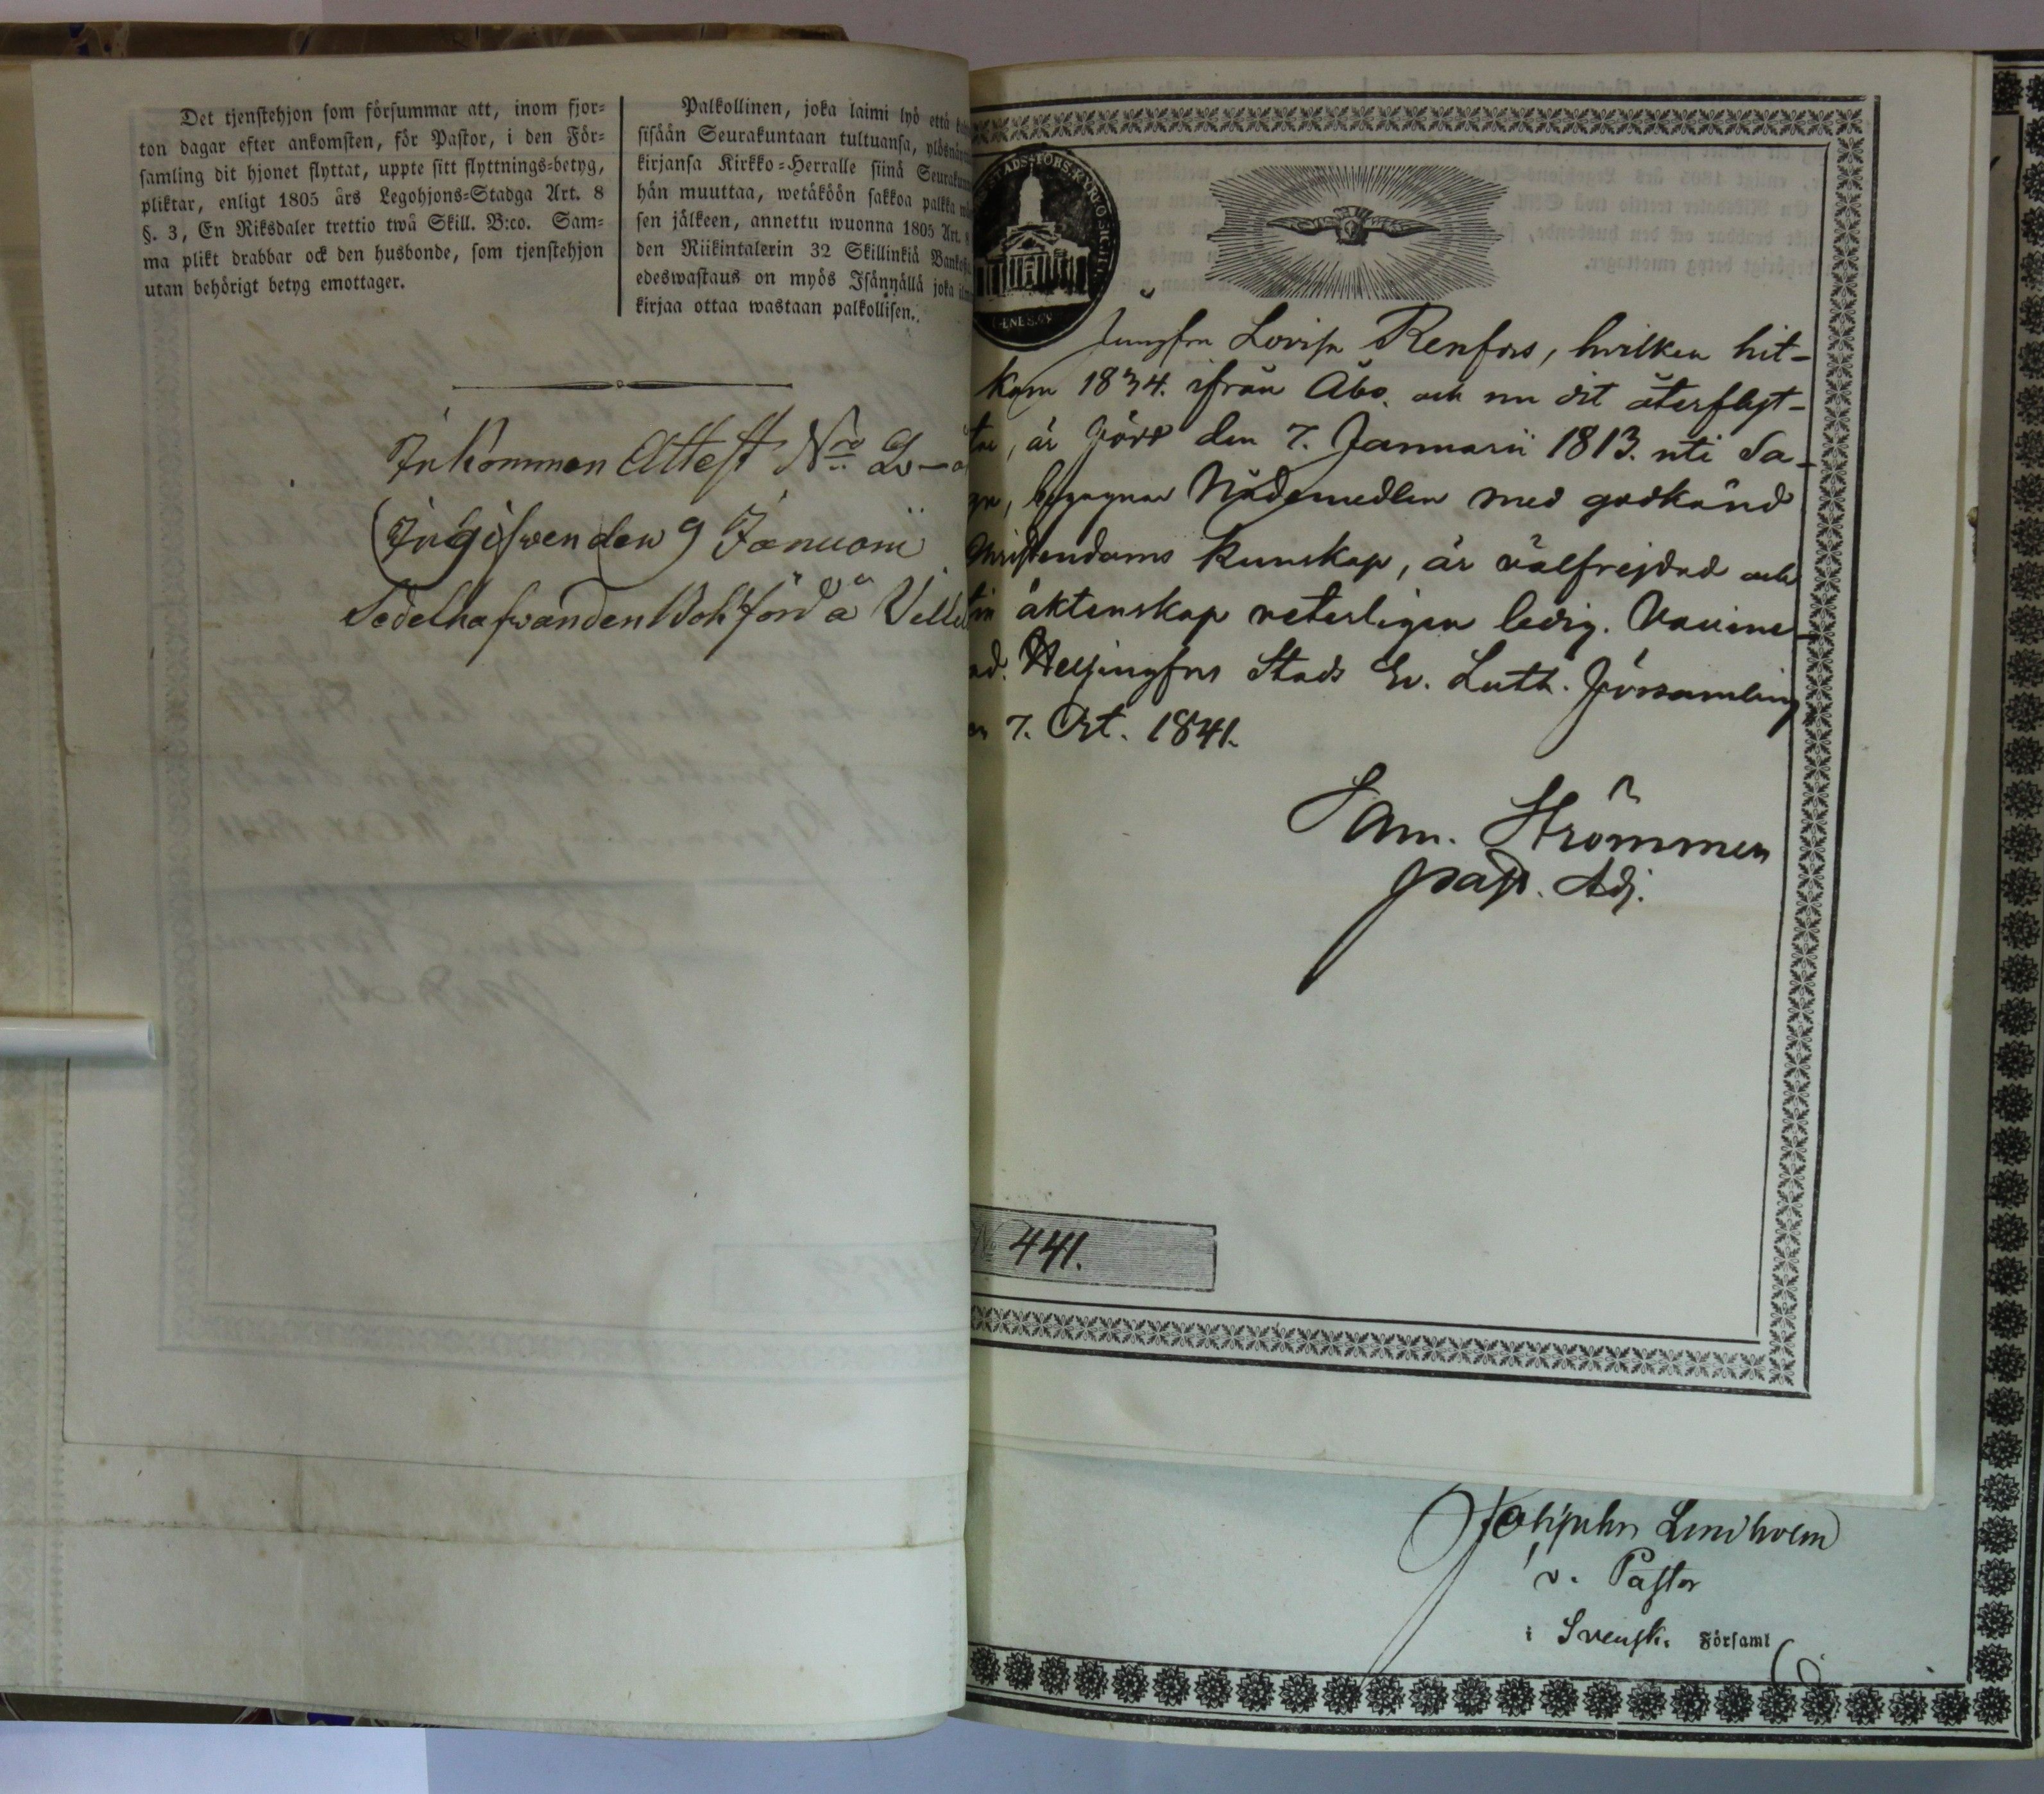 Det tjenstehjon som försummar att, inom fjor-
ton dagar efter ankomsten, för Pastor, i den För-
samling dit hjonet flyttat, uppte sitt flyttnings-betyg,
pliktar, enligt 1805 års Legohjons-Stadga Art. 8
§. 3, En Riksdaler trettio twå Skill. B:co. Sam-
ma plikt drabbar ock den husbonde, som tjenstehjon
utan behörigt betyg emottager.
Palkollinen, joka laimi lyö että
sisään Seurakuntaan tultuansa,
kirjansa Kirkko-Herralle siinä
hän muuttaa, wetäköön sakkoa palkka
sen jälkeen, annettu wuonna 1805 Art. 8
den Riikintalerin 32 Skillinkiä
edeswastaus on myös Isännällä joka
kirjaa ottaa wastaan palkollisen.
Inkommen Attest Nro
Ingifwen den 9 Januarii
Sedelhafwanden Bokförd å
STADS-FÖRS. KYRKO
Jungfru Lovisa Renfors, hvilken hit-
kom 1834. ifrån Åbo, och nu dit återflyt-
, är född den 7. Januarii 1813. uti Sa-
, begagnar Nådemedlen med godkänd
Christendoms kunskap, är välfrejdad och
till äktenskap veterligen ledig. Vaccine-
rad. Helsingfors Stads Ev. Luth. Församling
7. Oct. 1841.
Sam. Strömmer
past. Adj.
No 441.
Lindholm
v. Pastor
i Svensk. Församl